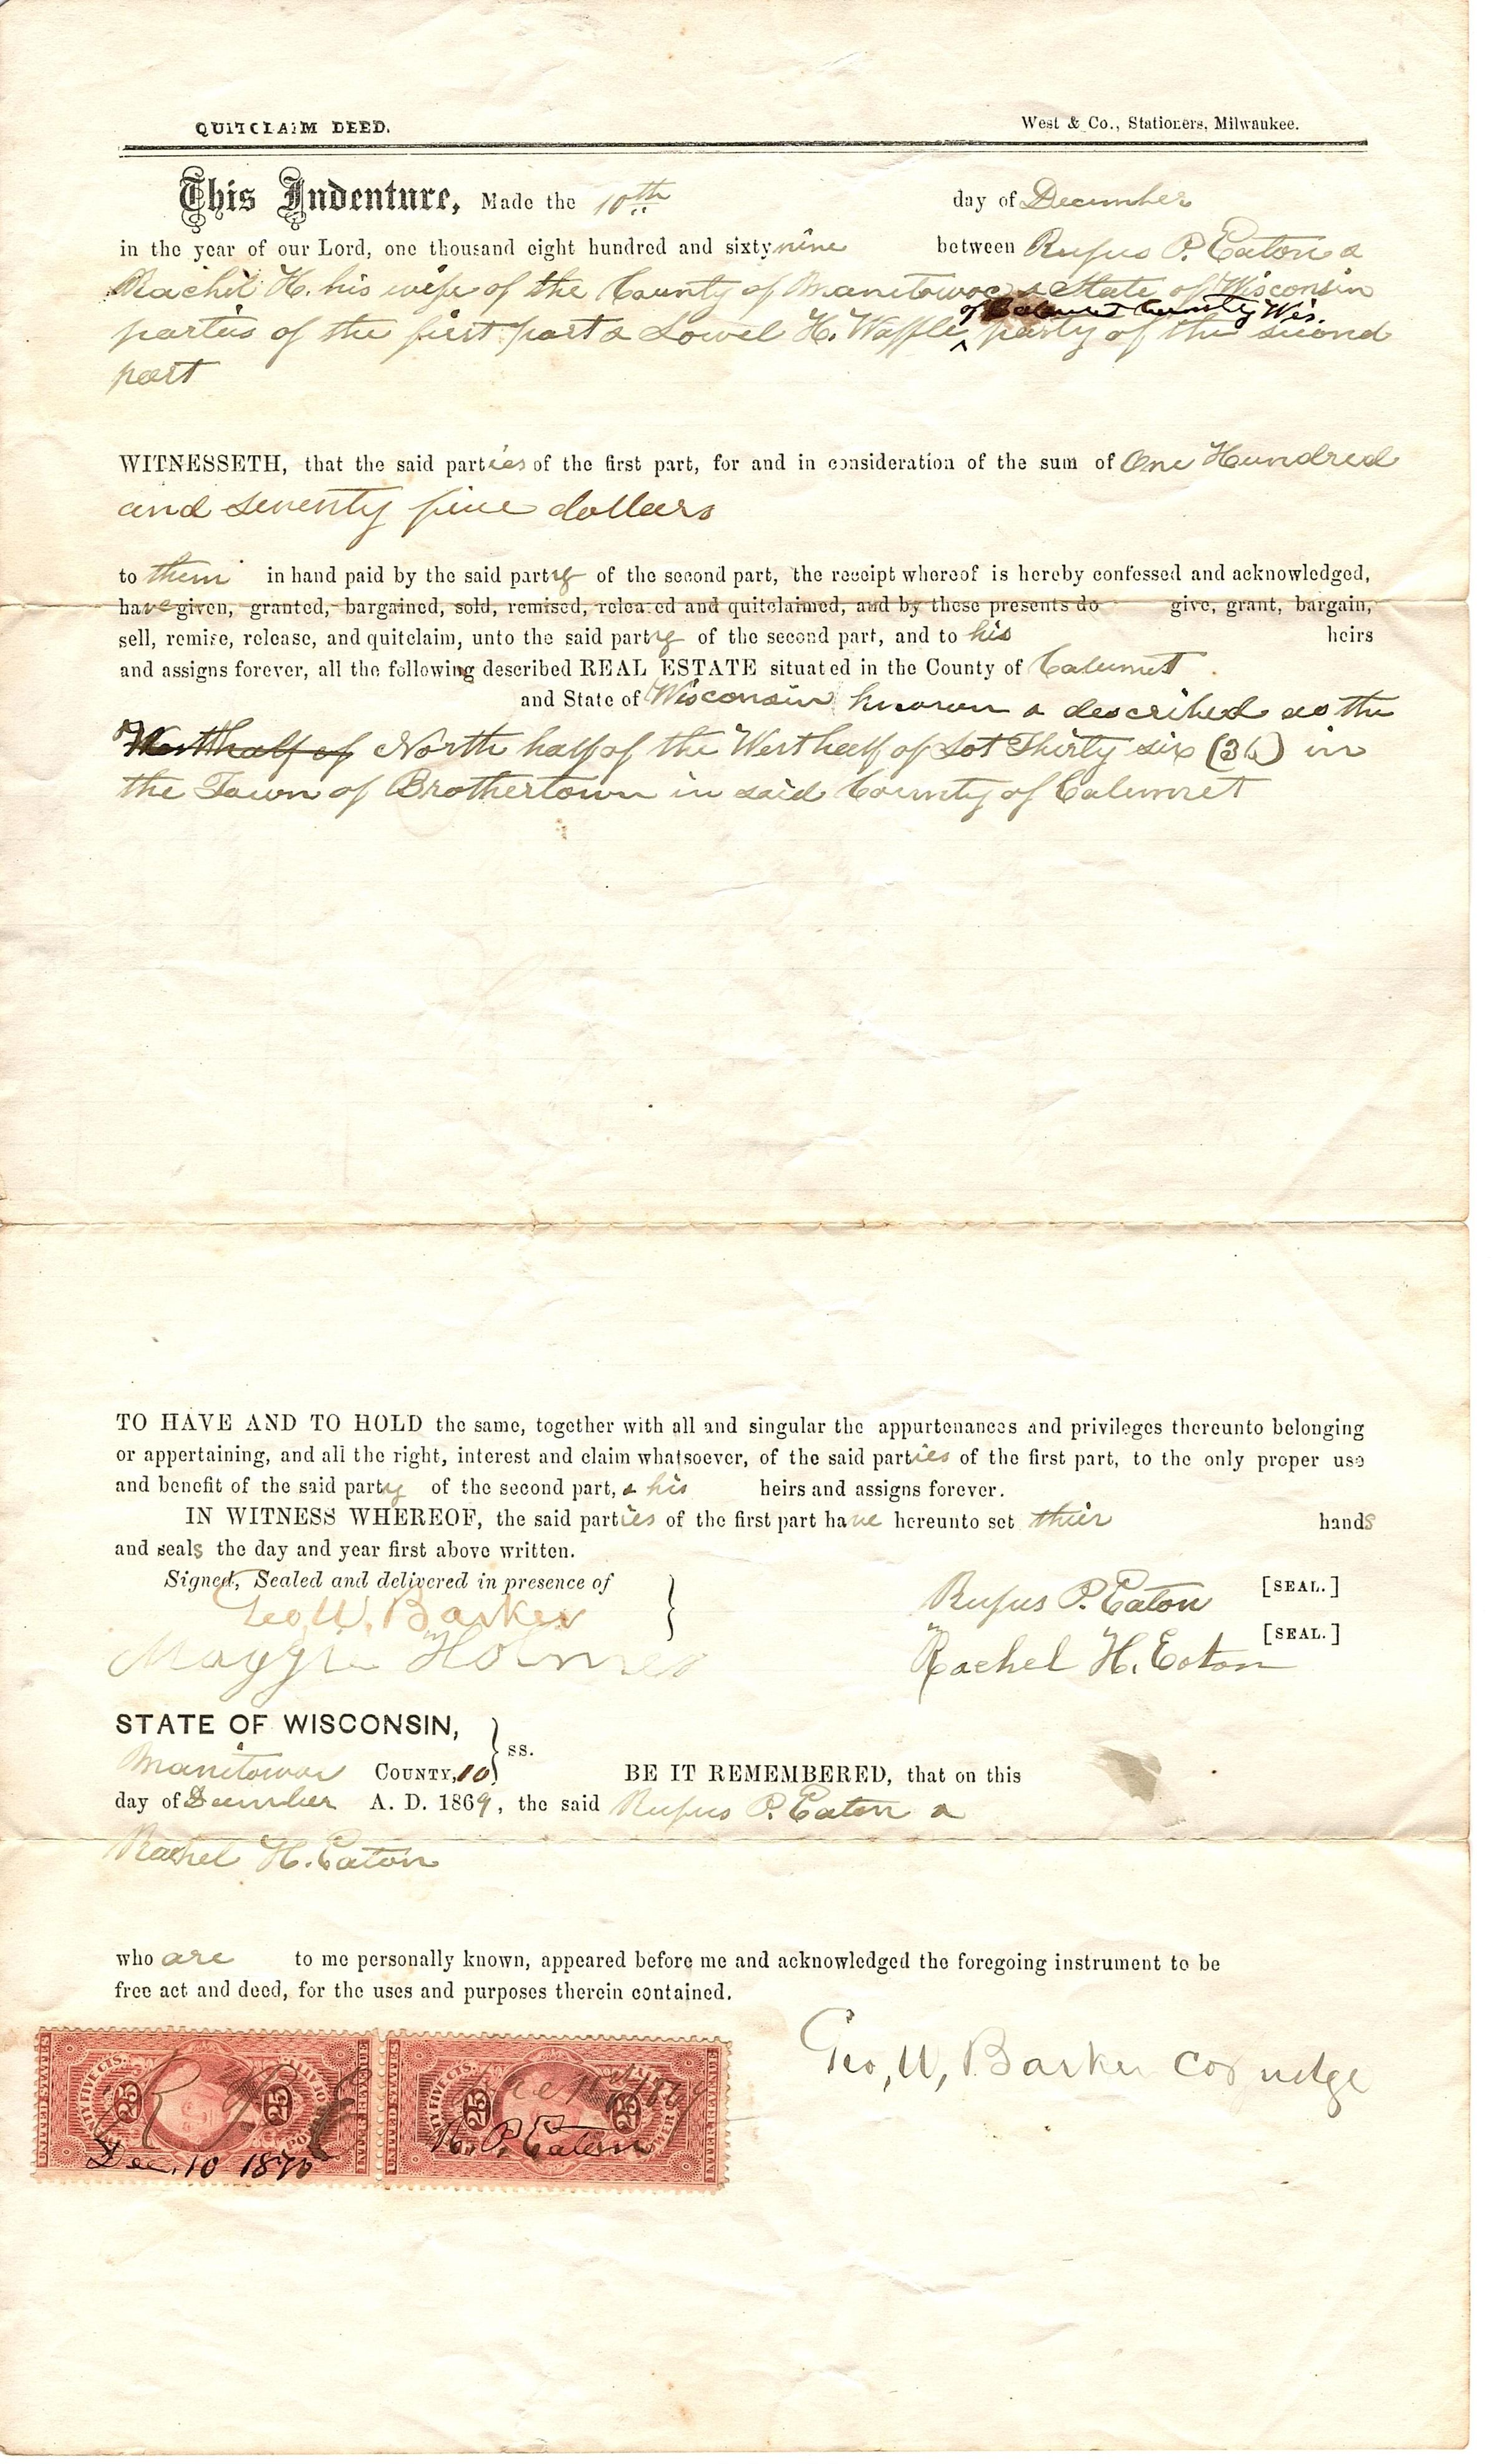 QUITCLAIM DEED. West & Co., Stationers, Milwaukee.
This Indenture, Made the 10th day of December
in the year of our Lord, one thousand eight hundred and sixty nine between Rufus P. Eaton &
Rachel H. his wife of the County of Manitowoc & State of Wisconsin
of Calumet County Wis.
parties of the first part & Lowel H. Waffle ^ party of the second
part
WITNESSETH, that the said parties of the first part, for and in consideration of the sum of One Hundred
and seventy five dollars
to them in hand paid by the said party of the second part, the receipt whereof is hereby confessed and acknowledged,
have given, granted, bargained, sold, remised, released and quitclaimed, and by these presents do give, grant, bargain,
sell, remise, release, and quitclaim, unto the said party of the second part, and to his heirs
and assigns forever, all the following described REAL ESTATE situated in the County of Calumet
and State of Wisconsin known & described as the
West half of North half of the West half of Lot Thirty six (36) in
the Town of Brothertown in said County of Calumet
TO HAVE AND TO HOLD the same, together with all and singular the appurtenances and privileges thereunto belonging
or appertaining, and all the right, interest and claim whatsoever, of the said parties of the first part, to the only proper use
and benefit of the said party of the second part, & his heirs and assigns forever.
IN WITNESS WHEREOF, the said parties of the first part have hereunto set their hands
and seals the day and year first above written.
Signed, Sealed and delivered in presence of
Geo. W. Barker
Maggie Holmes
Rufus P. Eaton [SEAL.]
Rachel H. Eaton [SEAL.]
STATE OF WISCONSIN,
Manitowoc COUNTY, 10 } ss. BE IT REMEMBERED, that on this
day of December A. D. 1869, the said Rufus P. Eaton &
Rachel H. Eaton
who are to me personally known, appeared before me and acknowledged the foregoing instrument to be
free act and deed, for the uses and purposes therein contained.
Geo, W, Barker Co Judge
25 25 25 25
R P E
Dec. 10 1870
Dec 10th 1869
R. P. Eaton